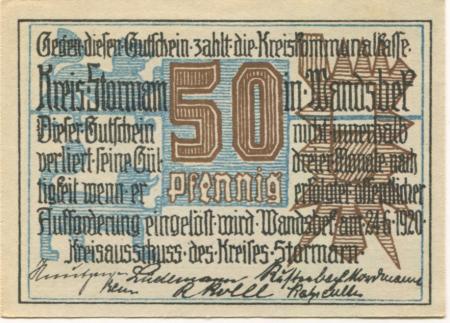 Gegen diesen Gutschein zahlt die Kreiskommunalkasse
Kreis Stormarn 50 in Wandsbek
Dieser Gutschein nicht innerhalb
verliert seine Gül- dreier Monate nach
tigkeit wenn er Pfennig erfolgter öffentlicher
Aufforderung eingelöst wird · Wandsbek am 21.6.1920 ·
Kreisausschuss · des · Kreises · Stormarn ·